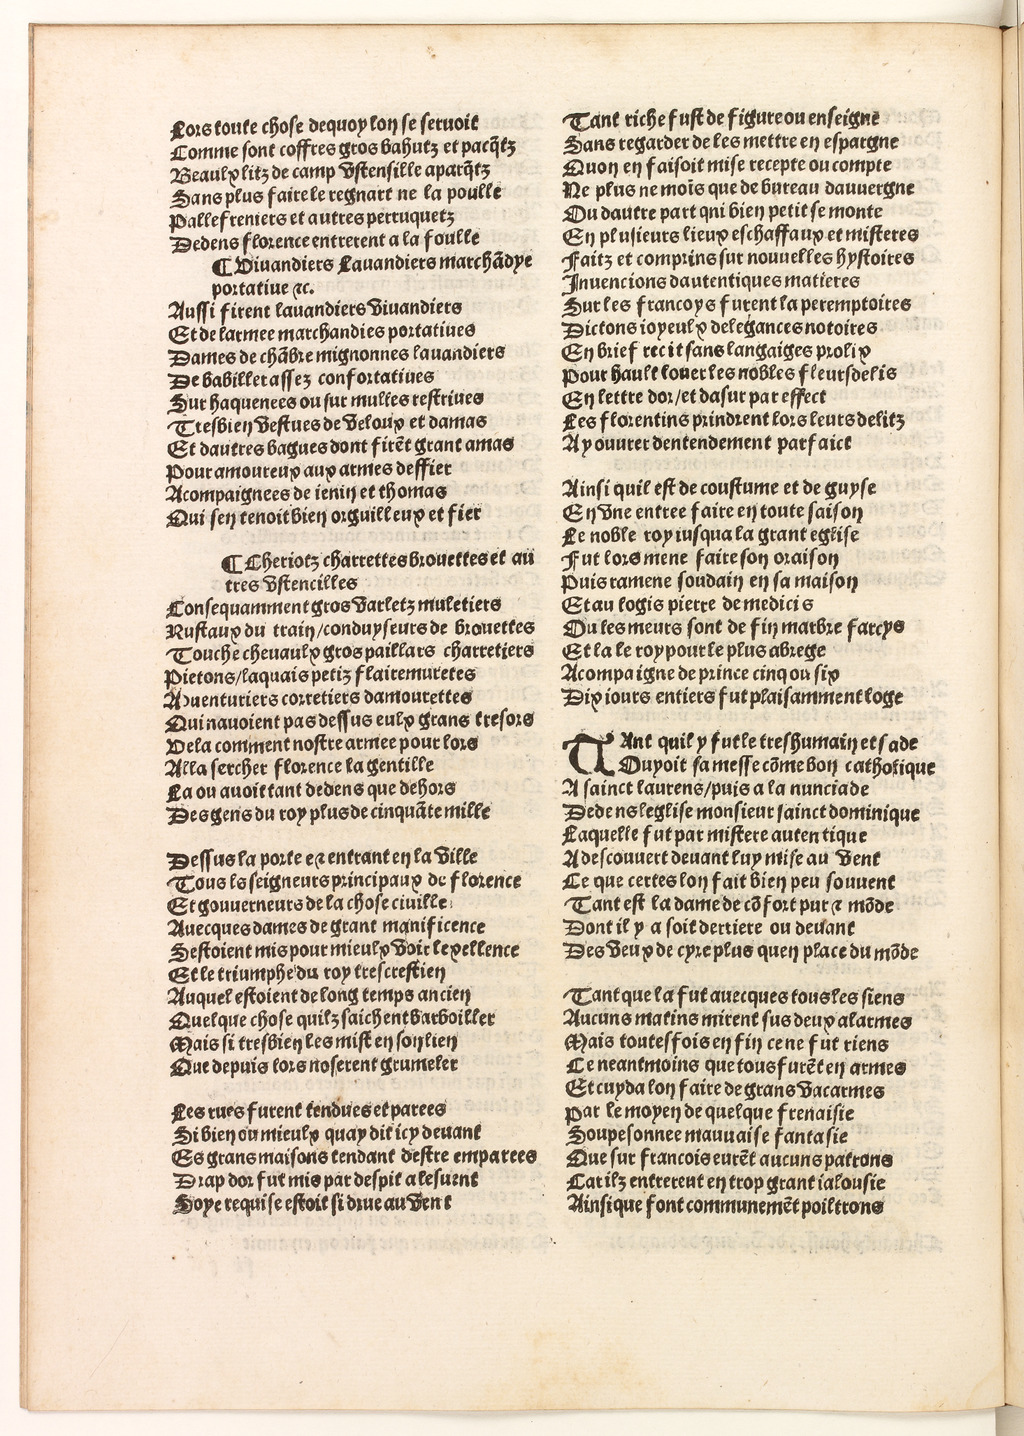 Lors toute chose dequoy lon se seruoit
Comme sont coffres gros bahutz et pacq̃tz
Beaulx litz de camp vstensille aparq̃tz
Sans plus faire le regnart ne la poulle
Pallefreniers et autres perruquetz
Dedens florence entrerent a la foulle
¶ Viuandiers Lauandiers marchãdye
portatiue ⁊c.
Aussi firent lauandiers viuandiers
Et de larmee marchandies portatiues
Dames de chãbre mignonnes lauandiers
De babiller assez confortatiues
Sur haquenees ou sur mulles restriues
Tresbien vestues de veloux et damas
Et dautres bagues dont firẽt grant amas
Pour amoureux aux armes deffier
Acompaignees de ienin et thomas
Qui sen tenoit bien orguilleux et fier
¶ Cheriotz charrettes brouettes et au
tres vstencilles
Consequamment gros varletz muletiers
Rustaux du train/conduyseurs de brouettes
Touche cheuaulx gros paillars charretiers
Pietons/laquais petiz flairemuretes
Auenturiers corretiers damourettes
Qui nauoient pas dessus eulx grans tresors
Vela comment nostre armee pour lors
Alla sercher florence la gentille
La ou auoit tant dedens que dehors
Des gens du roy plus de cinquãte mille
Dessus la porte et entrant en la ville
Tous ls seigneurs principaux de florence
Et gouuerneurs de la chose ciuille
Auecques dames de grant magnificence
Sestoient mis pour mieulx voir lexellence
Et le triumphe du roy trescrestien
Auquel estoient de long temps ancien
Quelque chose quilz saichent barboiller
Mais si tresbien les mist en son lien
Que depuis lors noserent grumeler
Les rues furent tendues et parees
Si bien ou mieulx quay dit icy deuant
Es grans maisons tendant destre emparees
Drap dor fut mis par despit a lesuent
Soye requise estoit si drue au vent
Tant riche fust de figure ou enseigne
Sans regarder de les mettre en espargne
Quon en faisoit mise recepte ou compte
Ne plus ne mois que de bureau dauuergne
Ou dautre part qni bien petit se monte
En plusieurs lieux eschaffaux et misteres
Faitz et comprins sur nouuelles hystoires
Inuencions dautentiques matieres
Sur les francoys furent la peremptoires
Dictons ioyeulx delegances notoires
En brief recit sans langaiges prolix
Pour hault louer les nobles fleursdelis
En lettre dor/et dasur par effect
Les florentins prindrent lors leurs delitz
Ay ouurer dentendement parfaict
Ainsi quil est de coustume et de guyse
En vne entree faire en toute saison
Le noble roy iusqua la grant eglise
Fut lors mene faire son oraison
Puis ramene soudain en sa maison
Et au logis pierre de medicis
Ou les meurs sont de fin marbre farcys
Et la le roy pour le plus abrege
Acompaigne de prince cinq ou six
Dix iours entiers fut plaisamment loge
TAnt quil y fut le treshumain et sade
Ouyoit sa messe cõme bon catholique
A sainct laurens/puis a la nunciade
Dedens leglise monsieur sainct dominique
Laquelle fut par mistere autentique
A descouuert deuant luy mise au vent
Ce que certes lon fait bien peu souuent
Tant est la dame de cõfort pur ⁊ mõde
Dont il y a soit derriere ou deuant
Des veux de cyre plus quen place du mõde
Tant que la fut auecques tous les siens
Aucuns matins mirent sus deux alarmes
Mais toutesfois en fin ce ne fut riens
Ce neantmoins que tous furẽt en armes
Et cuyda lon faire de grans vacarmes
Par le moyen de quelque frenaisie
Soupesonnee mauuaise fantasie
Que sur francois eurẽt aucuns patrons
Car ilz entrerent en trop grant ialousie
Ainsi que font communemẽt poiltrons